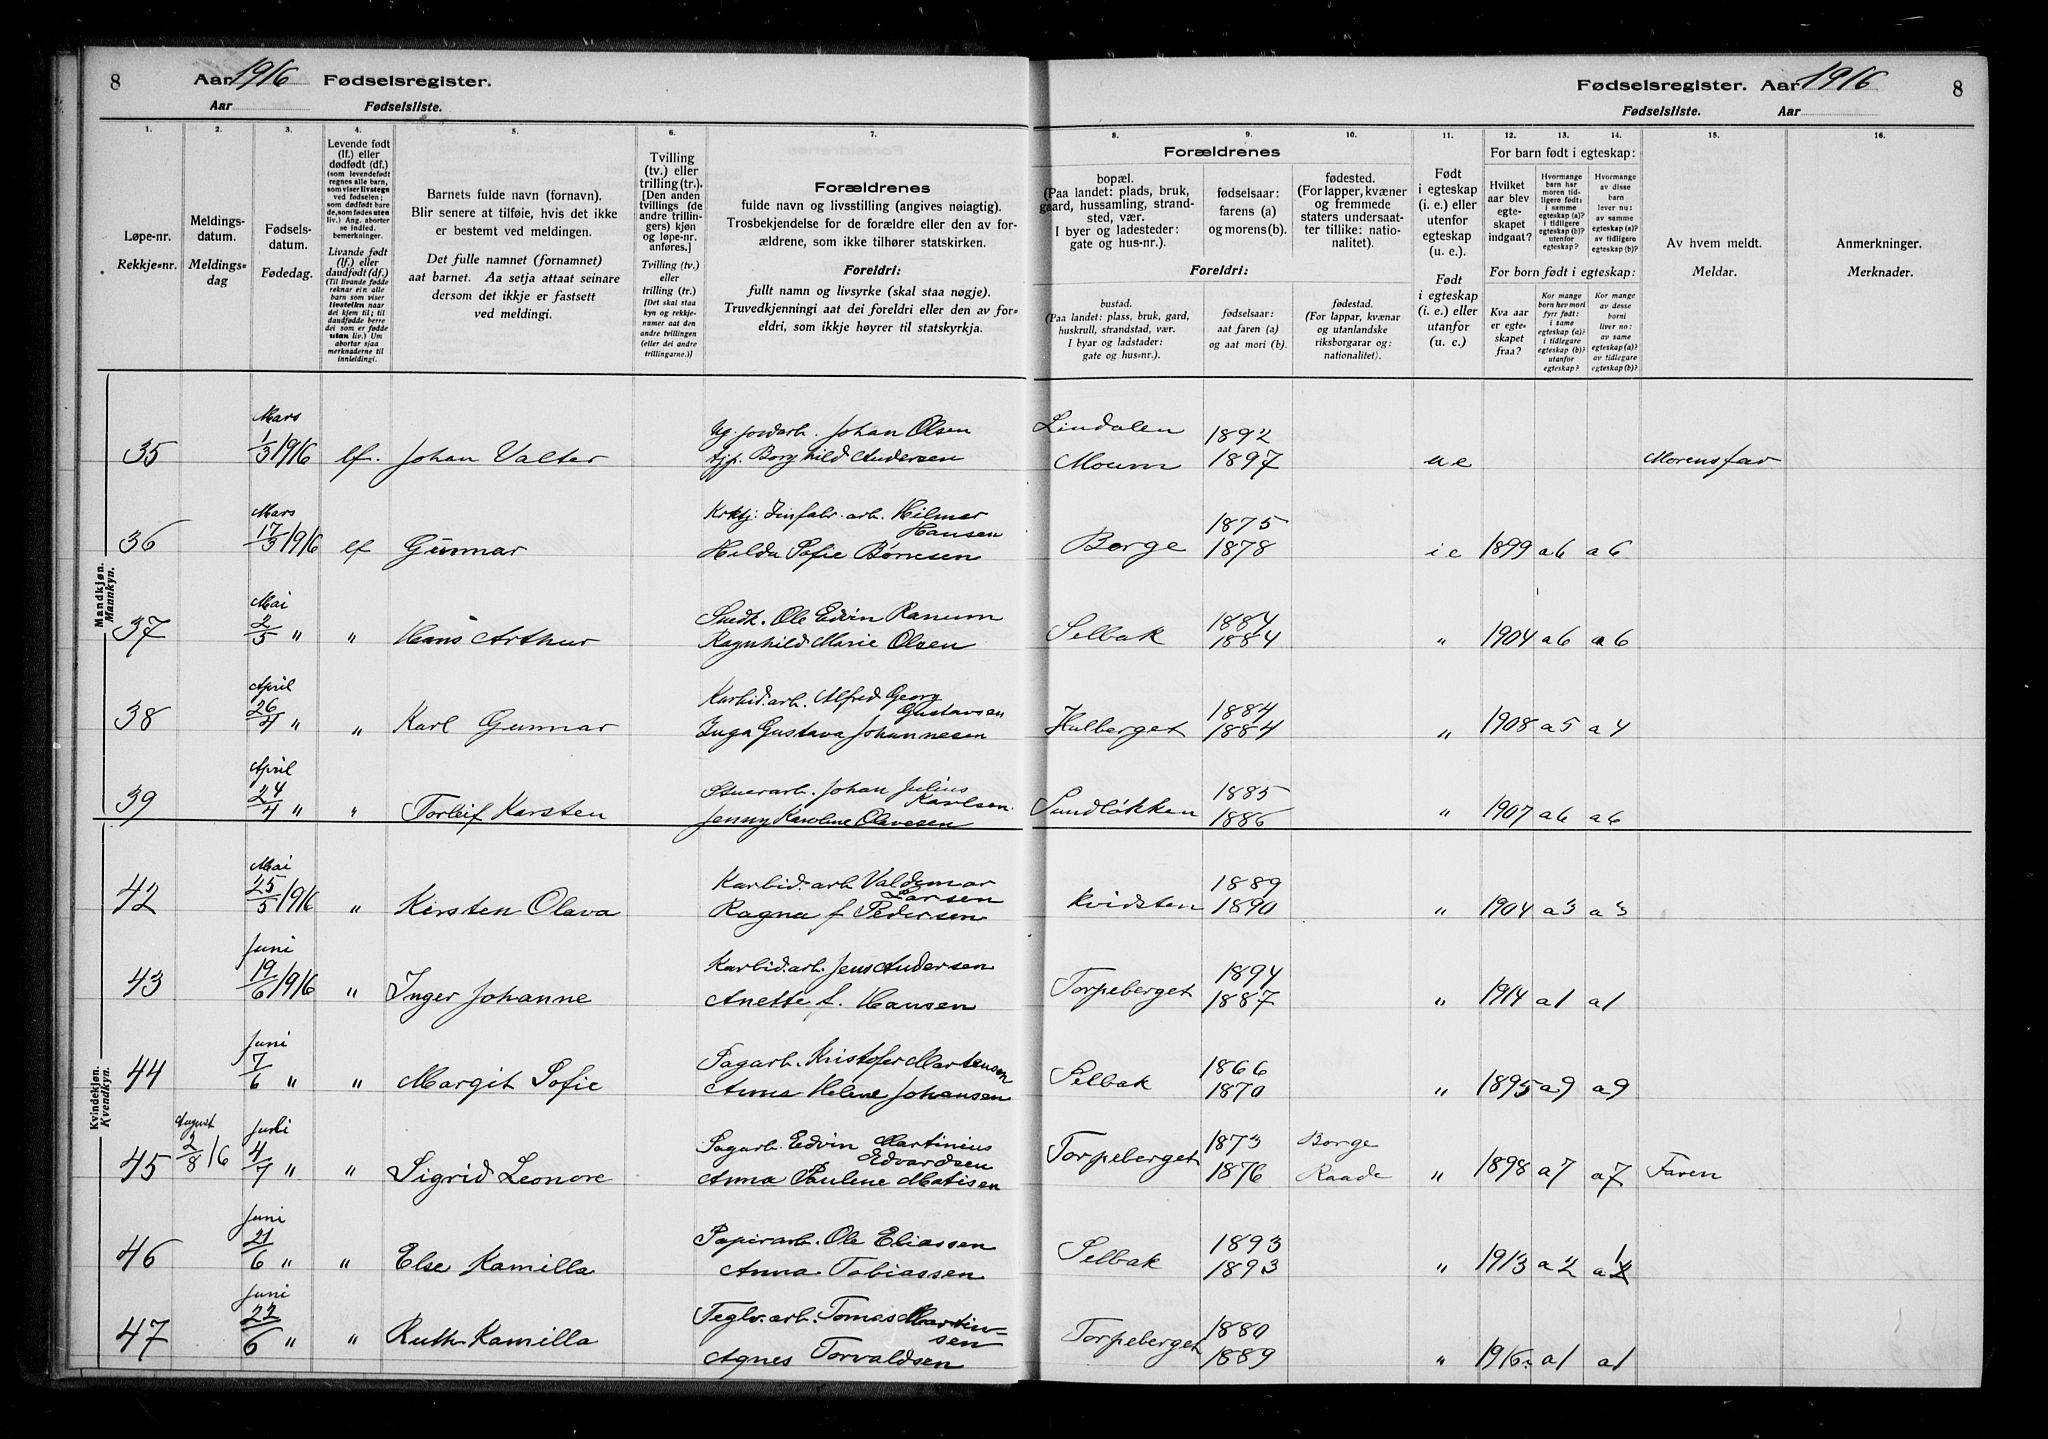 8 Aar 1916 Fødselsregister.
Aar Fødselsliste.
Fødselsregister. Aar 1916 8
Fødselsliste. Aar
1. 2. 3. 4. 5. 6. 7. 8. 9. 10. 11. 12. 13. 14. 15. 16.
Løpe-nr.
Rekkje-nr.
Meldings-
datum.
Meldings-
dag
Fødsels-
datum.
Fødedag.
Levende født
(lf.) eller
dødfødt (df.)
(som levendefødt
regnes alle barn,
som viser livstegn
ved fødselen;
som dødfødt bare
de, som fødes uten
liv.) Ang. aborter
se indled.
bemerkninger.
Livande født
(lf.) eller
daudfødt (df.)
(Til livande fødde
reknar ein alle
barn som viser
livsteikn naar
dei kjem til; til
daudfødde berre
dei som er fødde
utan liv.) Um
abortar sjaa
merknaderne til
innleidingi.
Barnets fulde navn (fornavn).
Blir senere at tilføie, hvis det ikke
er bestemt ved meldingen.
Det fulle namnet (fornamnet)
aat barnet. Aa setja attaat seinare
dersom det ikkje er fastsett
ved meldingi.
Tvilling
(tv.) eller
trilling (tr.).
[Den anden
tvillings (de
andre trillin-
gers) kjøn
og løpe-nr.
anføres.]
Tvilling (tv.)
eller
trilling (tr.)
[Det skal staa
kyn og rekkje-
numer aat den
andre tvillingen
(eller dei andre
trillingarne.)]
Forældrenes
fulde navn og livsstilling (angives nøiagtig).
Trosbekjendelse for de forældre eller den av for-
ældrene, som ikke tilhører statskirken.
Foreldri:
fullt namn og livsyrke (skal staa nøgje).
Truvedkjenningi aat dei foreldri eller den av for-
eldri, som ikkje høyrer til statskyrkja.
Forældrenes
bopæl.
(Paa landet: plads, bruk,
gaard, hussamling, strand-
sted, vær.
I byer og ladesteder:
gate og hus-nr.).
fødselsaar:
farens (a)
og morens(b).
fødested.
(For lapper, kvæner
og fremmede
staters undersaat-
ter tillike: natio-
nalitet).
Foreldri:
bustad.
(Paa landet: plass, bruk, gard,
huskrull, strandstad, vær.
I byar og ladstader:
gate og hus-nr.).
fødselsaar:
aat faren (a)
og aat mori (b).
fødestad.
(For lappar, kvænar
og utanlandske
riksborgarar og:
nationalitet).
Født
i egteskap
(i. e.) eller
utenfor
egteskap
(u. e.).
Født
i egteskap
(i. e.) eller
utanfor
(u. e.)
For barn født i egteskap:
Hvilket
aar blev
egte-
skapet
indgaat?
Hvormange
barn har
moren tid-
ligere født:
i samme
egteskap (a)?
i tidligere
egteskap (b)?
utenfor
egteskap?
Hvormange
av disse
barn
lever nu:
av samme
egteskap (a)?
av tidligere
egteskap (b)?
For born født i egteskap:
Kva aar
er egte-
skapet
fraa?
Kor mange
born hev mori
fyrr født:
i same
egteskap (a)?
i tidlegare
egteskap (b)?
utanfor
egteskap?
Kor mange
av desse
borni
liver no:
av same
egteskap (a)?
av tidlegare
egteskap (b)?
Av hvem meldt.
Meldar.
Anmerkninger.
Merknader.
Mandkjøn.
Mannkyn.
35 Mars 1/3 1916 lf. Johan Valter
Ug. jordarb. Johan Olsen
tjp. Borghild Andersen
Lindalen
Moum
1892
1897
u e Morens far
36 Mars 17/3 1916 lf Gunnar
Hilmer
Hansen
Hilda Sofie
Borge 1875
1878
i e 1899 a6 a6
37 Mai 2/5 " " Hans Arthur
Snedk. Ole Edvin Ranum
Ragnhild Marie Olsen
Selbak 1884
1884
" 1904 a6 a6
38 April 26/4 " " Karl Gunnar
Karbid.arb. Alfred Georg
Gustavsen
Inga Gustava Johannesen
Hulberget 1884
1884
" 1908 a5 a4
39 April 24/4 " " Torleif Karsten
Stuerarb. Johan Julius
Karlsen.
Jenny Karoline Olavesen
Sundløkken 1885
1886
" 1907 a6 a6
Kvindekjøn.
Kvendkyn.
42 Mai 25/5 1916 " Kirsten Olava
Karbid.arb. Valdemar
Larsen
Ragna f. Pedersen
Kvidsten 1889
1890
" 1904 a3 a3
43 Juni 19/6 1916 " Inger Johanne
Karbid.arb. Jens Andersen
Anette f. Hansen
Torpeberget 1894
1887
" 1914 a1 a1
44 Juni 7/6 " " Margit Sofie
Sagarb. Kristofer Martensen
Anna Helene Johansen
Selbak 1866
1870
" 1895 a9 a9
45 August 2/8 16 Juli 4/7 " " Sigrid Leonore
Sagarb. Edvin Martinius
Edvardsen
Anna Pauline Matisen
Torpeberget 1873
1876
Borge
Raade
" 1898 a7 a7 Faren
46 Juni 21/6 " " Else Kamilla
Papirarb. Ole Eliassen
Anna Tobiassen
Selbak 1893
1893
" 1913 a2 a1
47 Juni 22/6 " " Ruth Kamilla
Teglv.arb. Tomas Martin-
sen
Agnes Torvaldsen
Torpeberget 1880
1889
" 1916. a1 a1